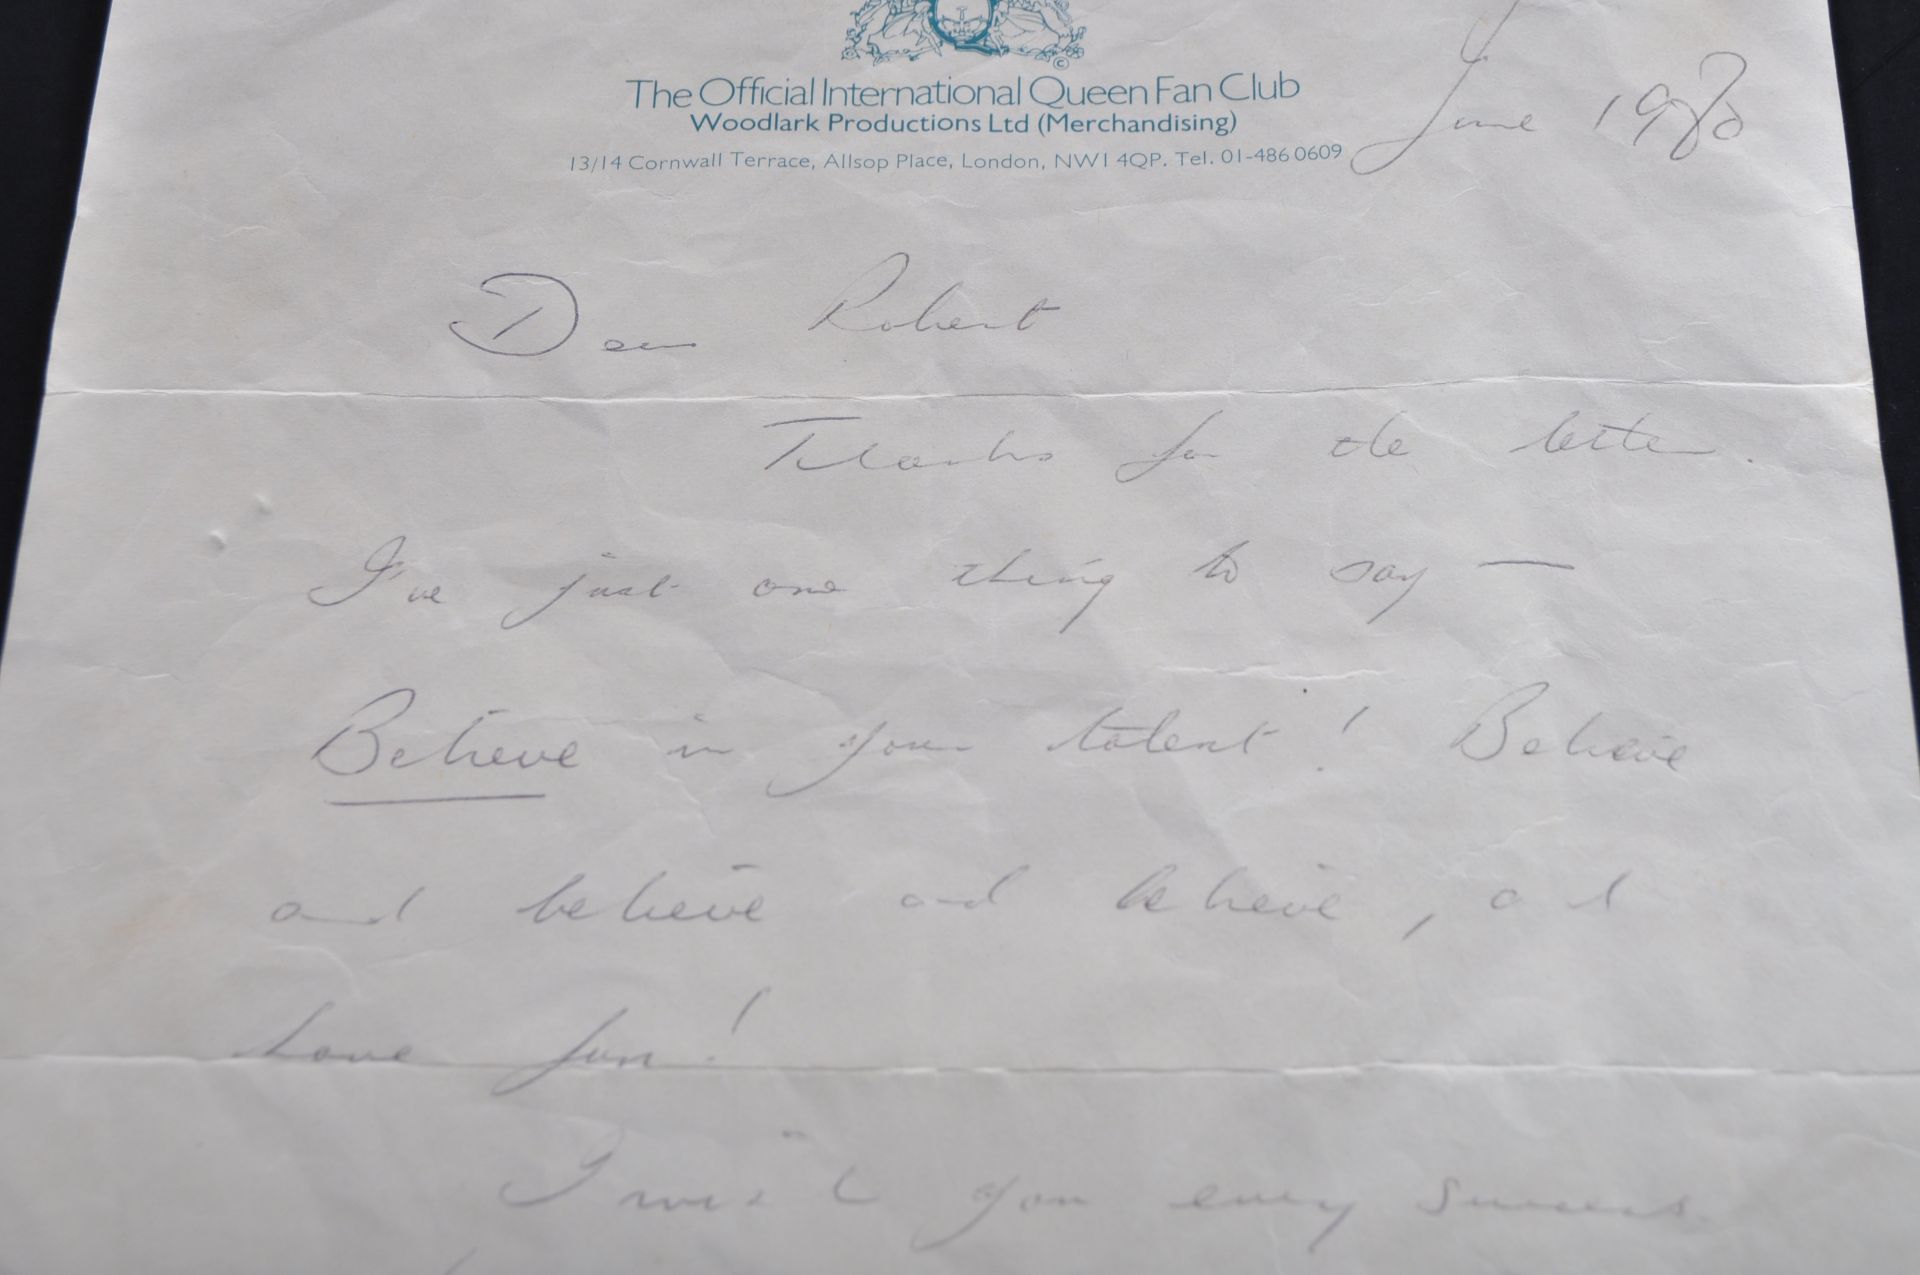 The Official International Queen Fan Club
Woodlark Productions Ltd (Merchandising)
13/14 Cornwall Terrace, Allsop Place, London, NW1 4QP. Tel. 01-486 0609
June 1980
Dear Robert
Thanks for the letter.
I've just one thing to say —
Believe in your talent! Believe
and believe and believe, and
have fun!
I wish you every success.